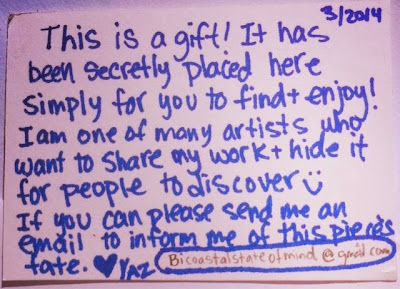 3/2014
This is a gift! It has
been secretly placed here
simply for you to find + enjoy!
I am one of many artists who
want to share my work + hide it
for people to discover
If you can please send me an
email to inform me of this piece's
fate. ♥ YAZ Bicoastalstateofmind@gmail.com